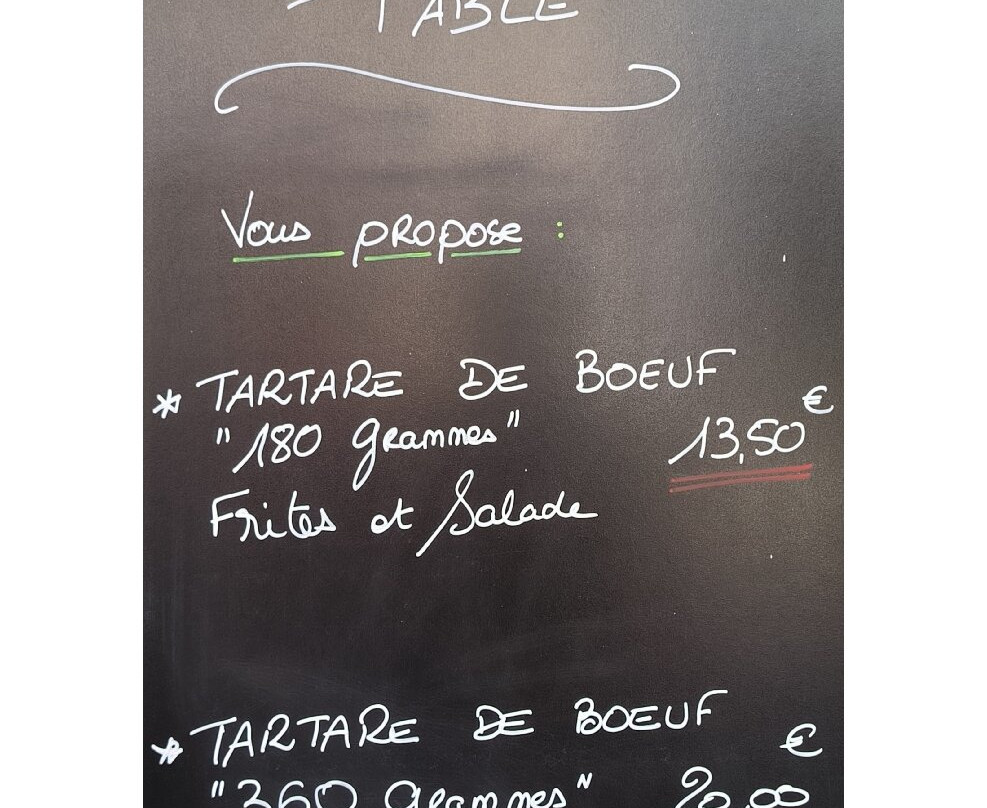 TABLE
Vous propose :
* TARTARE DE BOEUF
"180 grammes" 13,50 €
Frites et Salade
* TARTARE DE BOEUF
"360 grammes" 20,00 €